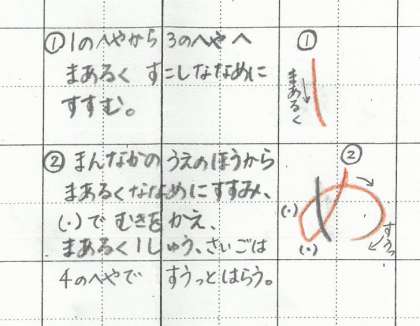 ①1のへやから3のへやへ
まあるく すこしななめに
すすむ。
①
まあるく
②まんなかの うえのほうから
まあるくななめにすすみ、
(・)で むきをかえ、
まあるく1しゅう、さいごは
4のへやで すうっとはらう。
②
(・)
(・)
すうっ